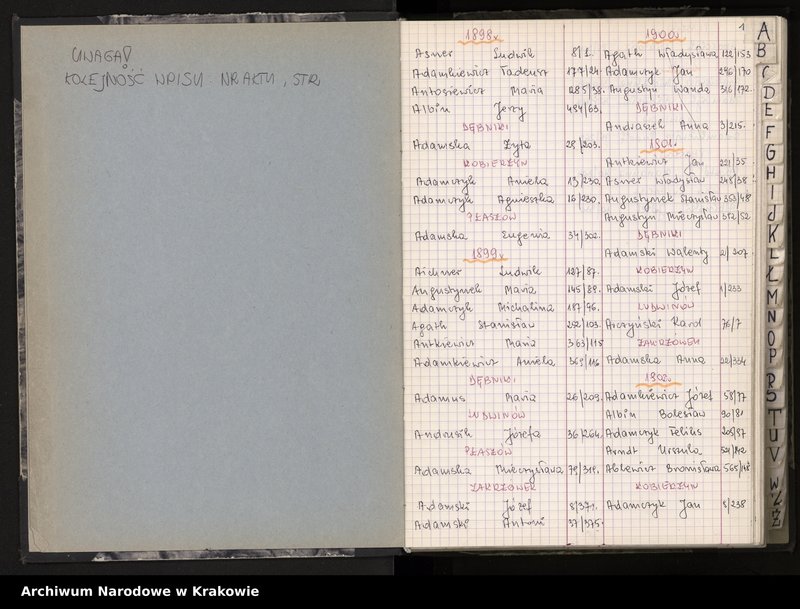 UWAGA!
KOLEJNOŚĆ WPISU: NR AKTU, STR.
1
1898r.
Asner Ludwik 8/1.
Adamkiewicz Tadeusz 177/24.
Antosiewicz Maria 285/38.
Albin Jerzy 484/63.
DĘBNIKI
Adamska Zyta 28/203.
KOBIERZYN
Adamczyk Aniela 13/230.
Adamczyk Agnieszka 16/230.
PŁASZÓW
Adamska Eugenia 34/302.
1899r.
Aichner Ludwik 127/87.
Augustynek Maria 145/89.
Adamczyk Michalina 187/96.
Agath Stanisław 232/103.
Antkiewicz Maria 303/115
Adamkiewicz Aniela 309/116
DĘBNIKI
Adamus Maria 26/209.
LUDWINÓW
Andrusik Józefa 36/264.
PŁASZÓW
Adamska Mieczysława 79/319.
ZAKRZÓWEK
Adamski Józef 8/371.
Adamski Antoni 37/375.
1900r.
Agath Władysława 122/153
Adamczyk Jan 296/170
Augustyn Wanda 316/172.
DĘBNIKI
Andraszek Anna 3/215.
1901.
Antkiewicz Jan 221/35.
Asner Władysław 248/38
Augustynek Stanisław 353/48
Augustyn Mieczysław 372/52
DĘBNIKI
Adamski Walenty 2/207.
KOBIERZYN
Adamski Józef 1/233
LUDWINÓW
Arczyński Karol 76/7
ZAKRZÓWEK
Adamska Anna 22/334
1902.
Adamkiewicz Józef 58/77
Albin Bolesław 90/81
Adamczyk Feliks 209/97
Arndt Urszula
Ablewicz Bronisława
KOBIERZYN
Adamczyk Jan 8/238
A
B
C
D
E
F
G
H
I
J
K
L
Ł
M
N
O
P
R
S
T
U
V
W
Z
Ż
Archiwum Narodowe w Krakowie